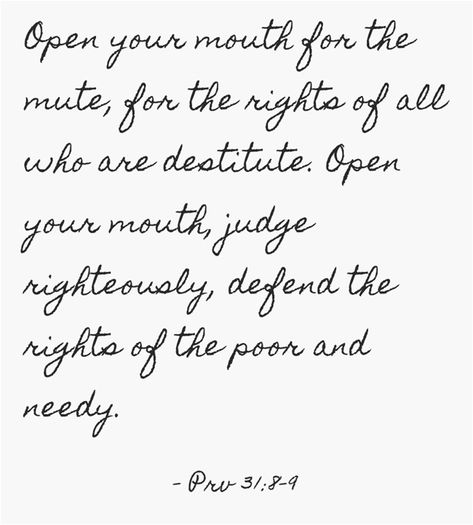 Open your mouth for the
mute, for the rights of all
who are destitute. Open
your mouth, judge
righteously, defend the
rights of the poor and
needy.
- Prv 31:8-9